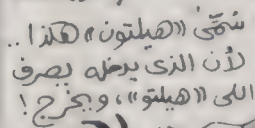 سُمّىَ ((هيلتون)) هكذا..
لأن الذى يدخله يصرف
اللى ((هيلتو))، ويخرج!